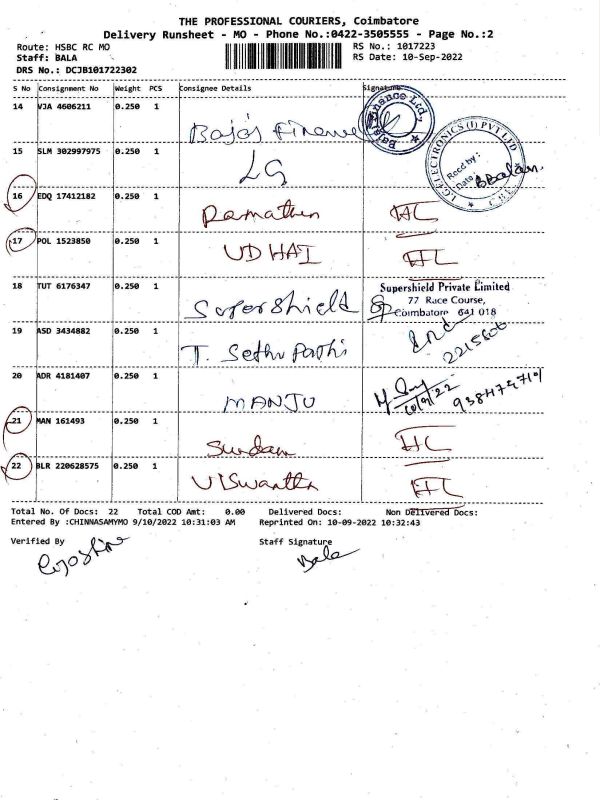 THE PROFESSIONAL COURIERS, Coimbatore
Delivery Runsheet - MO - Phone No.:0422-3505555 - Page No.:2
Route: HSBC RC MO RS No.: 1017223
Staff: BALA RS Date: 10-Sep-2022
DRS No.: DCJB101722302
S No Consignment No Weight PCS Consignee Details Signature
14 VJA 4606211 0.250 1
Bajaj Finance
15 SLM 302997975 0.250 1
LG
LG ELECTRONICS (I) PVT LTD
Recd by:
Date:
16 EDQ 17412182 0.250 1
HC
17 POL 1523850 0.250 1
UDHAI HC
18 TUT 6176347 0.250 1 Supershield Private Limited
77 Race Course,
Supershield Coimbatore 641 018
19 ASD 3434882 0.250 1
T. Sethupathi
20 ADR 4181407 0.250 1
MANJU
21 MAN 161493 0.250 1
HC
22 BLR 220628575 0.250 1
HC
Total No. Of Docs: 22 Total COD Amt: 0.00 Delivered Docs: Non Delivered Docs:
Entered By :CHINNASAMYMO 9/10/2022 10:31:03 AM Reprinted On: 10-09-2022 10:32:43
Verified By Staff Signature
Bala